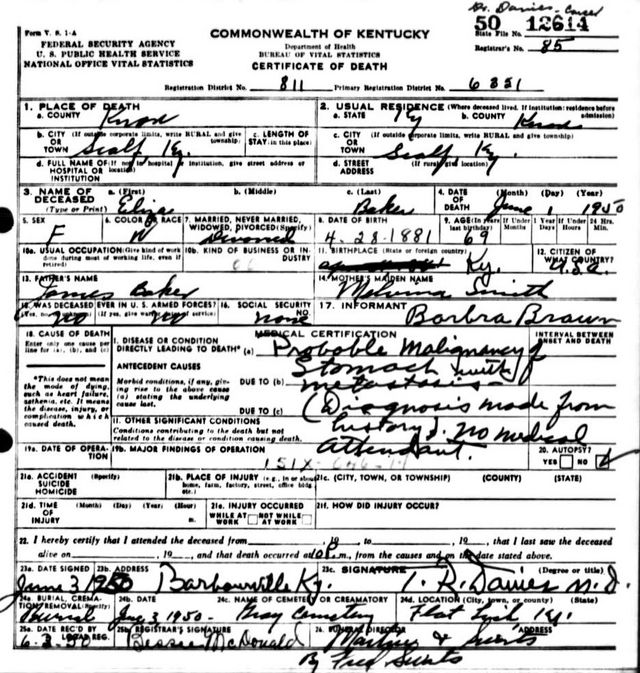 Dr. Davies - Coroner
50 12614
Form V. S. 1-A
COMMONWEALTH OF KENTUCKY
State File No.
FEDERAL SECURITY AGENCY
Department of Health
Registrar's No. 85
U. S. PUBLIC HEALTH SERVICE
BUREAU OF VITAL STATISTICS
NATIONAL OFFICE VITAL STATISTICS
CERTIFICATE OF DEATH
Registration District No. 811 Primary Registration District No. 6351
1. PLACE OF DEATH
a. COUNTY Knox
2. USUAL RESIDENCE (Where deceased lived. If institution: residence before admission)
a. STATE Ky b. COUNTY Knox
b. CITY (If outside corporate limits, write RURAL and give township) OR TOWN Scalf Ky.
c. LENGTH OF STAY (in this place)
c. CITY (If outside corporate limits, write RURAL and give township) OR TOWN Scalf Ky.
d. FULL NAME OF (If not in hospital or institution, give street address or location) HOSPITAL OR INSTITUTION
d. STREET ADDRESS (If rural, give location)
3. NAME OF DECEASED (Type or Print)
a. (First) Eliza b. (Middle) c. (Last) Baker
4. DATE OF DEATH (Month) (Day) (Year) June 1 1950
5. SEX F
6. COLOR OR RACE W
7. MARRIED, NEVER MARRIED, WIDOWED, DIVORCED (Specify) Divorced
8. DATE OF BIRTH 4-28-1881
9. AGE (In years last birthday) 69 If Under 1 Year Months Days If Under 24 Hrs. Hours Min.
10a. USUAL OCCUPATION (Give kind of work done during most of working life, even if retired)
10b. KIND OF BUSINESS OR INDUSTRY
11. BIRTHPLACE (State or foreign country) Ky.
12. CITIZEN OF WHAT COUNTRY? U.S.A.
13. FATHER'S NAME James Baker
14. MOTHER'S MAIDEN NAME Smith
15. WAS DECEASED EVER IN U. S. ARMED FORCES? (Yes, no, or unknown) (If yes, give war or dates of service) no no
16. SOCIAL SECURITY NO. none
17. INFORMANT Barbra Brown
18. CAUSE OF DEATH
Enter only one cause per line for (a), (b), and (c)
MEDICAL CERTIFICATION
INTERVAL BETWEEN ONSET AND DEATH
I. DISEASE OR CONDITION DIRECTLY LEADING TO DEATH* (a) Probable Malignancy of Stomach with
*This does not mean the mode of dying, such as heart failure, asthenia, etc. It means the disease, injury, or complication which caused death.
ANTECEDENT CAUSES
Morbid conditions, if any, giving rise to the above cause (a) stating the underlying cause last.
DUE TO (b) metastasis-
DUE TO (c) (Diagnosis made from
II. OTHER SIGNIFICANT CONDITIONS
Conditions contributing to the death but not related to the disease or condition causing death.
history). No medical attendant.
19a. DATE OF OPERATION
19b. MAJOR FINDINGS OF OPERATION
151X
20. AUTOPSY? YES NO
21a. ACCIDENT SUICIDE HOMICIDE (Specify)
21b. PLACE OF INJURY (e.g., in or about home, farm, factory, street, office bldg. etc.)
21c. (CITY, TOWN, OR TOWNSHIP) (COUNTY) (STATE)
21d. TIME OF INJURY (Month) (Day) (Year) (Hour) m.
21e. INJURY OCCURRED WHILE AT WORK NOT WHILE AT WORK
21f. HOW DID INJURY OCCUR?
22. I hereby certify that I attended the deceased from , 19 to , 19 , that I last saw the deceased
alive on , 19 , and that death occurred at 10P m., from the causes and on the date stated above.
23a. DATE SIGNED June 3 1950
23b. ADDRESS Barbourville Ky.
23c. SIGNATURE (Degree or title) T. R. Davies M.D.
24a. BURIAL, CREMATION, REMOVAL (Specify) Burial
24b. DATE 3 1950
24c. NAME OF CEMETERY OR CREMATORY Gray Cemetery
24d. LOCATION (City, town, or county) (State) Flat Lick Ky.
25a. DATE REC'D BY LOCAL REG. 6-3-50
25b. REGISTRAR'S SIGNATURE Bessie McDonald
26. FUNERAL DIRECTOR ADDRESS
By Fred